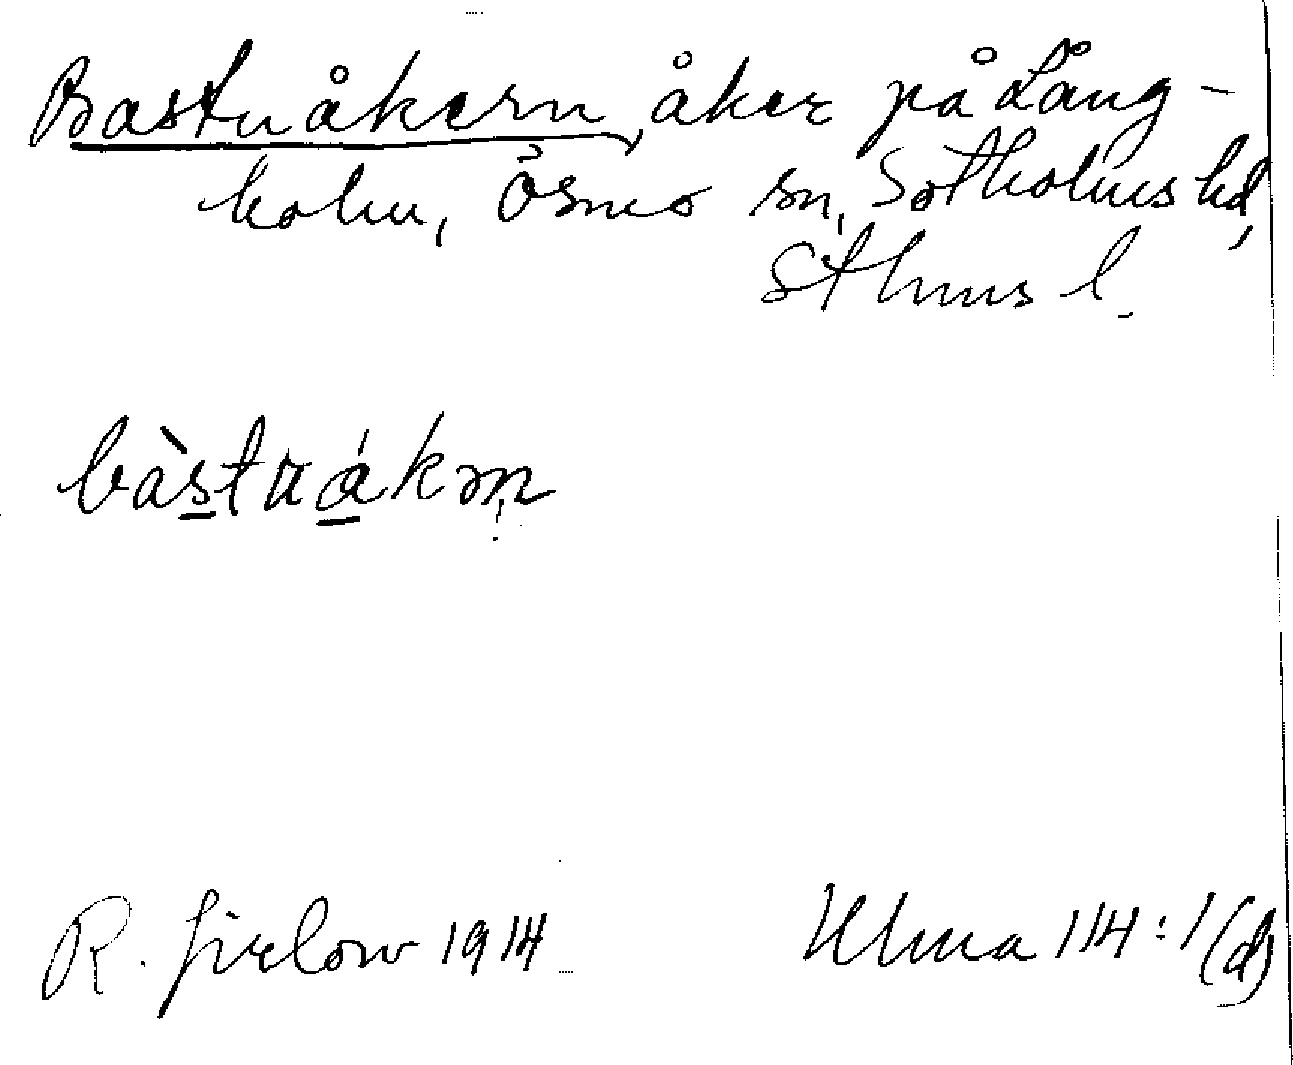 Bastuåkern, åker på Lång-
holm, Ösmo sn, Sotholms hd,
Sthms l.
bàstuákən
R. Jirlow 1914
Ulma 114:1(d)